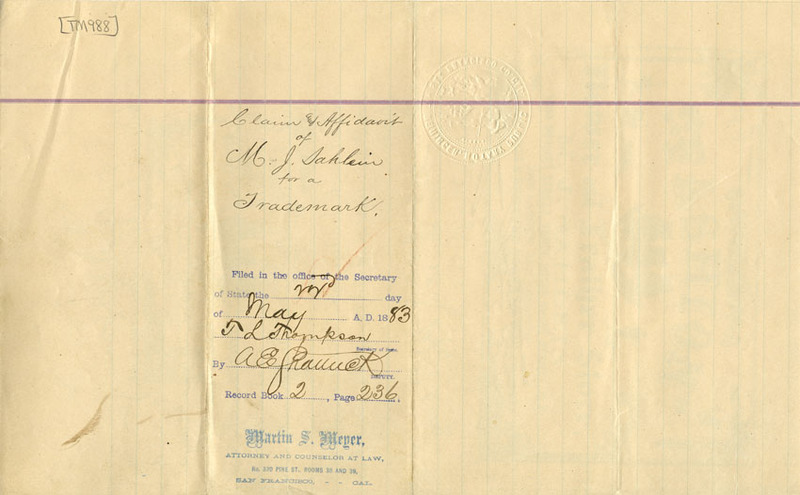 [TM988]
Claim & Affidavit
of
M. J. Sahlein
for a
Trademark.
Filed in the office of the Secretary
of State the day
of May A. D. 1883
T L Thompson
Secretary of State.
By A E
DEPUTY.
Record Book 2, Page 236,
Martin S. Meyer,
ATTORNEY AND COUNSELOR AT LAW,
No. PINE ST. ROOMS AND
SAN FRANCISCO, - - CAL.